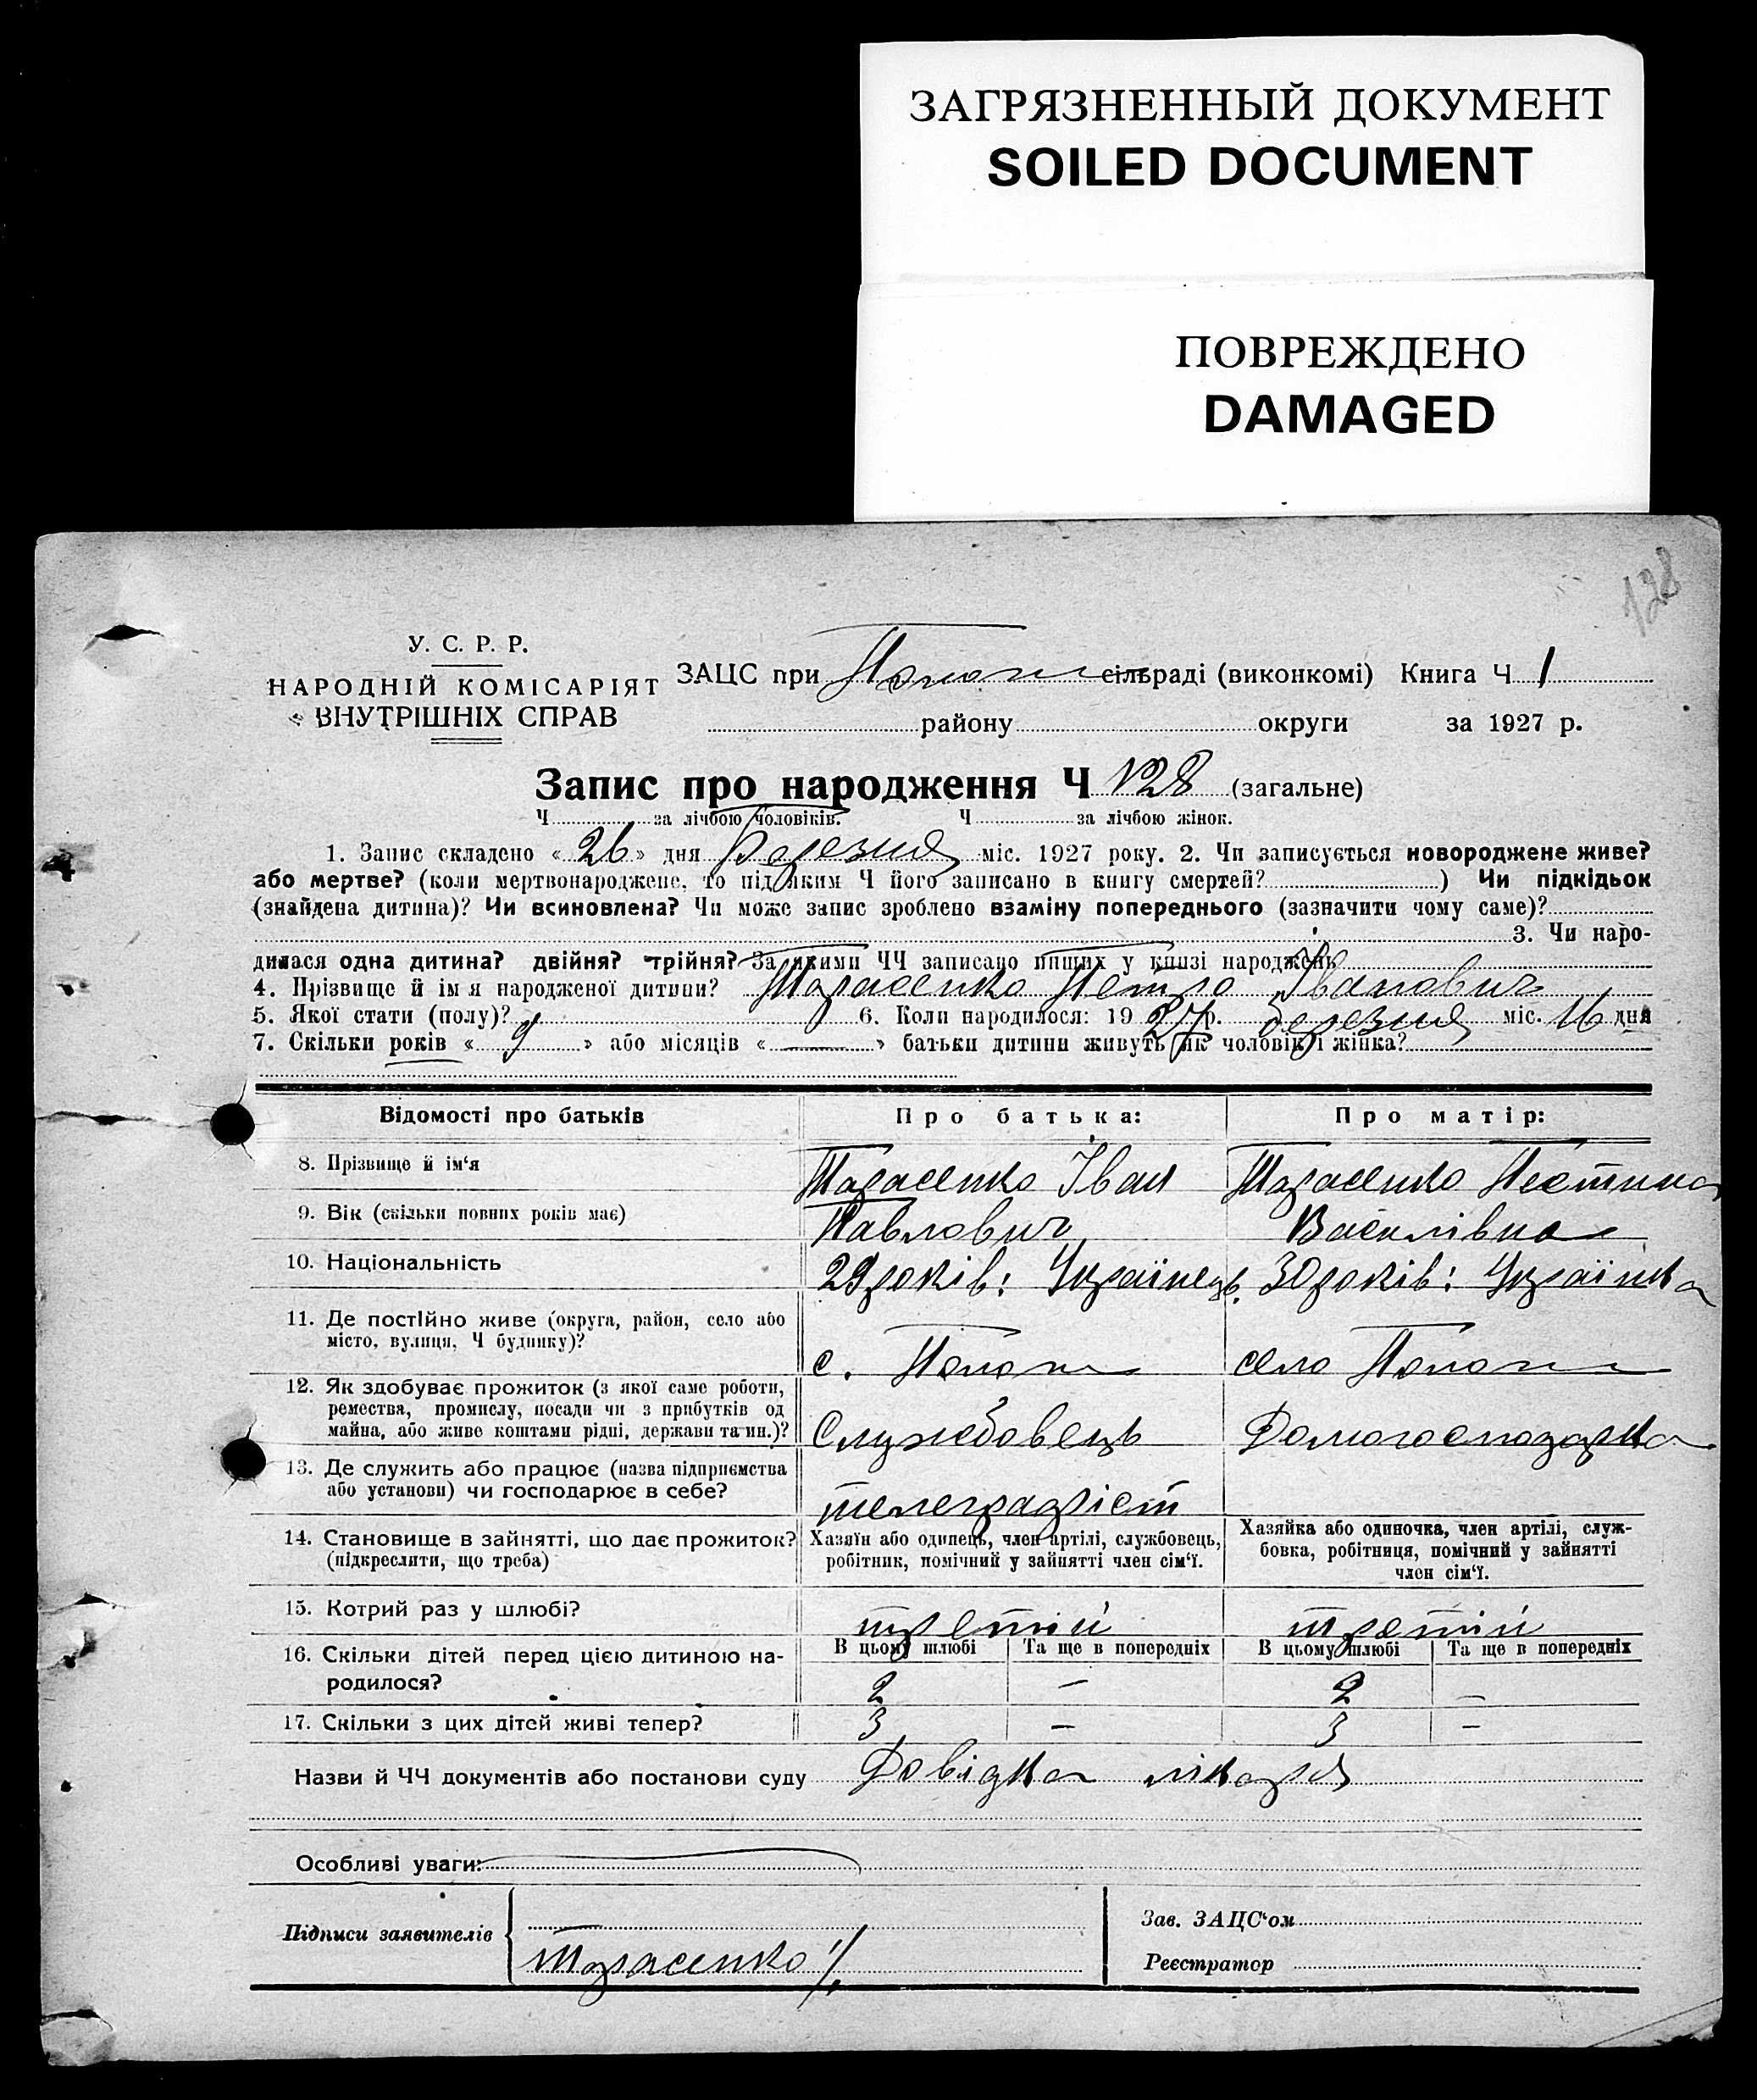 ЗАГРЯЗНЕННЫЙ ДОКУМЕНТ
SOILED DOCUMENT
ПОВРЕЖДЕНО
DAMAGED
128
У. С. Р. Р.
НАРОДНІЙ КОМІСАРІЯТ
ВНУТРІШНІХ СПРАВ
ЗАЦС при Пологи сільраді (виконкомі) Книга Ч 1
району округи за 1927 р.
Запис про народження Ч 128 (загальне)
Ч за лічбою чоловіків. Ч за лічбою жінок.
1. Запис складено « 26 » дня Березня міс. 1927 року. 2. Чи записується новороджене живе?
або мертве? (коли мертвонароджене, то під яким Ч його записано в книгу смертей? ) Чи підкідьок
(знайдена дитина)? Чи всиновлена? Чи може запис зроблено взаміну попереднього (зазначити чому саме)?
3. Чи наро-
дилася одна дитина? двійня? трійня? За якими ЧЧ записано инших у книзі народжень
4. Прізвище й ім я народженої дитини? Тарасенко Петро Іванович
5. Якої стати (полу)? 6. Коли народилося: 19 27 р. березня міс. 16 дня
7. Скільки років « 9 » або місяців « — » батьки дитини живуть як чоловік і жінка?
Відомості про батьків
Про батька:
Про матір:
8. Прізвище й ім'я
Тарасенко Іван
Тарасенко
9. Вік (скільки повних років має)
Павлович
Василівна
10. Національність
29 років: Українець.
30 років: Українка
11. Де постійно живе (округа, район, село або
місто, вулиця, Ч будинку)?
с. Пологи
село Пологи
12. Як здобуває прожиток (з якої саме роботи,
ремества, промислу, посади чи з прибутків од
майна, або живе коштами рідні, держави та ин.)?
Службовець
Домогосподарка
13. Де служить або працює (назва підприємства
або установи) чи господарює в себе?
телеграфіст
14. Становище в зайнятті, що дає прожиток?
(підкреслити, що треба)
Хазяїн або одинець, член артілі, службовець,
робітник, помічний у зайнятті член сім'ї.
Хазяйка або одиночка, член артілі, служ-
бовка, робітниця, помічний у зайнятті
член сім'ї.
15. Котрий раз у шлюбі?
третій
третій
В цьому шлюбі Та ще в попередніх
В цьому шлюбі Та ще в попередніх
16. Скільки дітей перед цією дитиною на-
родилося?
2 — 2 —
17. Скільки з цих дітей живі тепер?
3 — 3 —
Назви й ЧЧ документів або постанови суду Довідка лікаря
Особливі уваги:
Підписи заявителів
Тарасенко
Зав. ЗАЦС'ом
Реєстратор